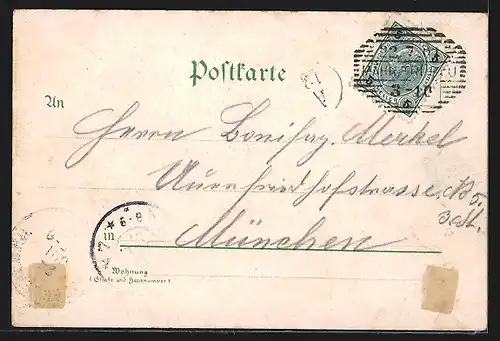 Postkarte
An
Herrn Bonifaz Merkel
Auenfriedhofstrasse
B 5.
3.St.
in München
Wohnung
(Straße und Hausnummer)